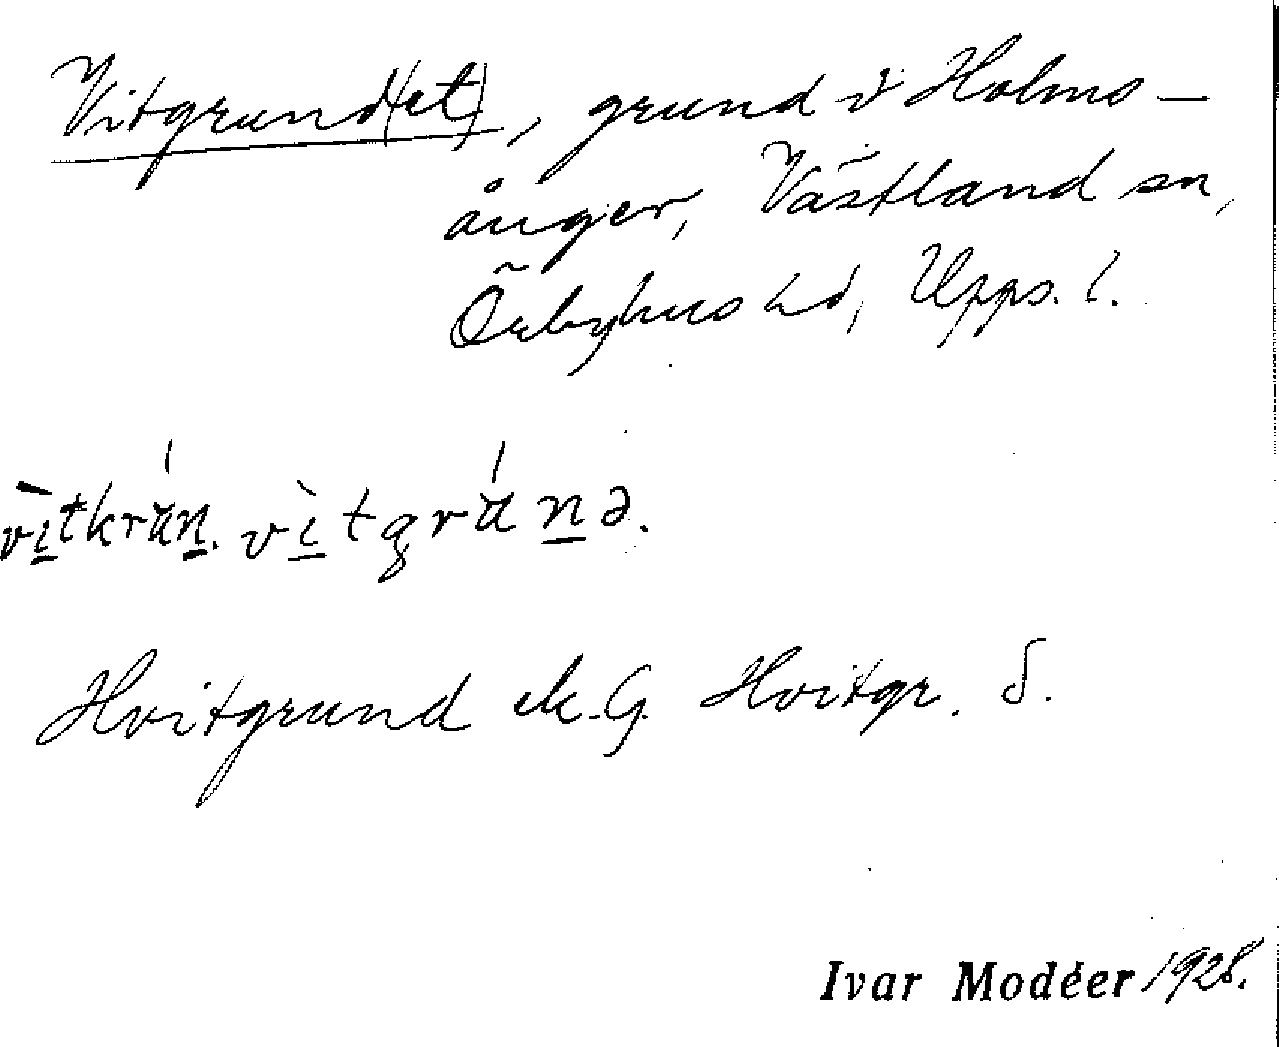 Vitgrund(et), grund i Holms-
ånger, Västland sn,
Örbyhus hd, Upps. l.
vi̲tkrun̲. vi̲tgrun̲ə.
Hvitgrund ek. G. Hvitgr. S.
Ivar Modéer 1928.